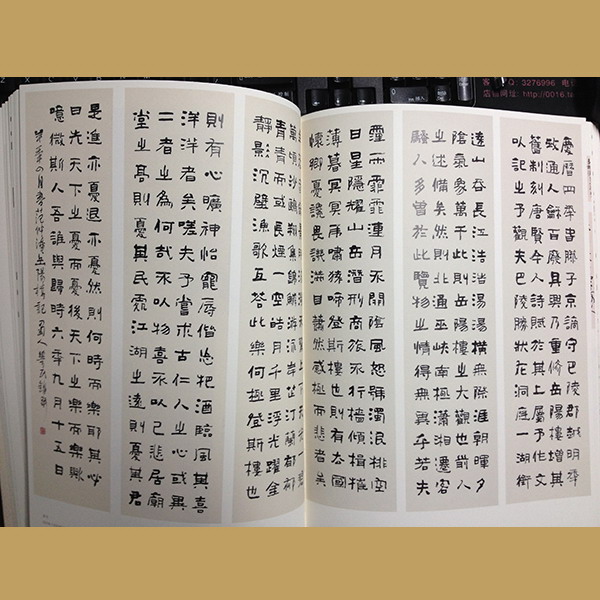 客 QQ: 3276996 电
店铺网址: http://0016.ta
慶曆四年春滕子京謫守巴陵郡越明年
政通人和百廢具興乃重修岳陽樓增其
舊制刻唐賢今人詩賦於其上屬予作文
以記之予觀夫巴陵勝狀在洞庭一湖銜
遠山吞長江浩浩湯湯橫無際涯朝暉夕
陰氣象萬千此則岳陽樓之大觀也前人
之述備矣然則北通巫峽南極瀟湘遷客
騷人多會於此覽物之情得無異乎若夫
霪雨霏霏連月不開陰風怒號濁浪排空
日星隱耀山岳潛形商旅不行檣傾楫摧
薄暮冥冥虎嘯猿啼登斯樓也則有去國
懷鄉憂讒畏譏滿目蕭然感極而悲者矣
萬頃沙鷗翔集錦鱗游泳岸芷汀蘭郁郁
青青而或長煙一空皓月千里浮光躍金
靜影沉璧漁歌互答此樂何極登斯樓也
則有心曠神怡寵辱偕忘把酒臨風其喜
洋洋者矣嗟夫予嘗求古仁人之心或異
二者之為何哉不以物喜不以己悲居廟
堂之高則憂其民處江湖之遠則憂其君
是進亦憂退亦憂然則何時而樂耶其必
曰先天下之憂而憂後天下之樂而樂歟
噫微斯人吾誰與歸時六年九月十五日
年四月書范仲淹岳陽樓記蜀人